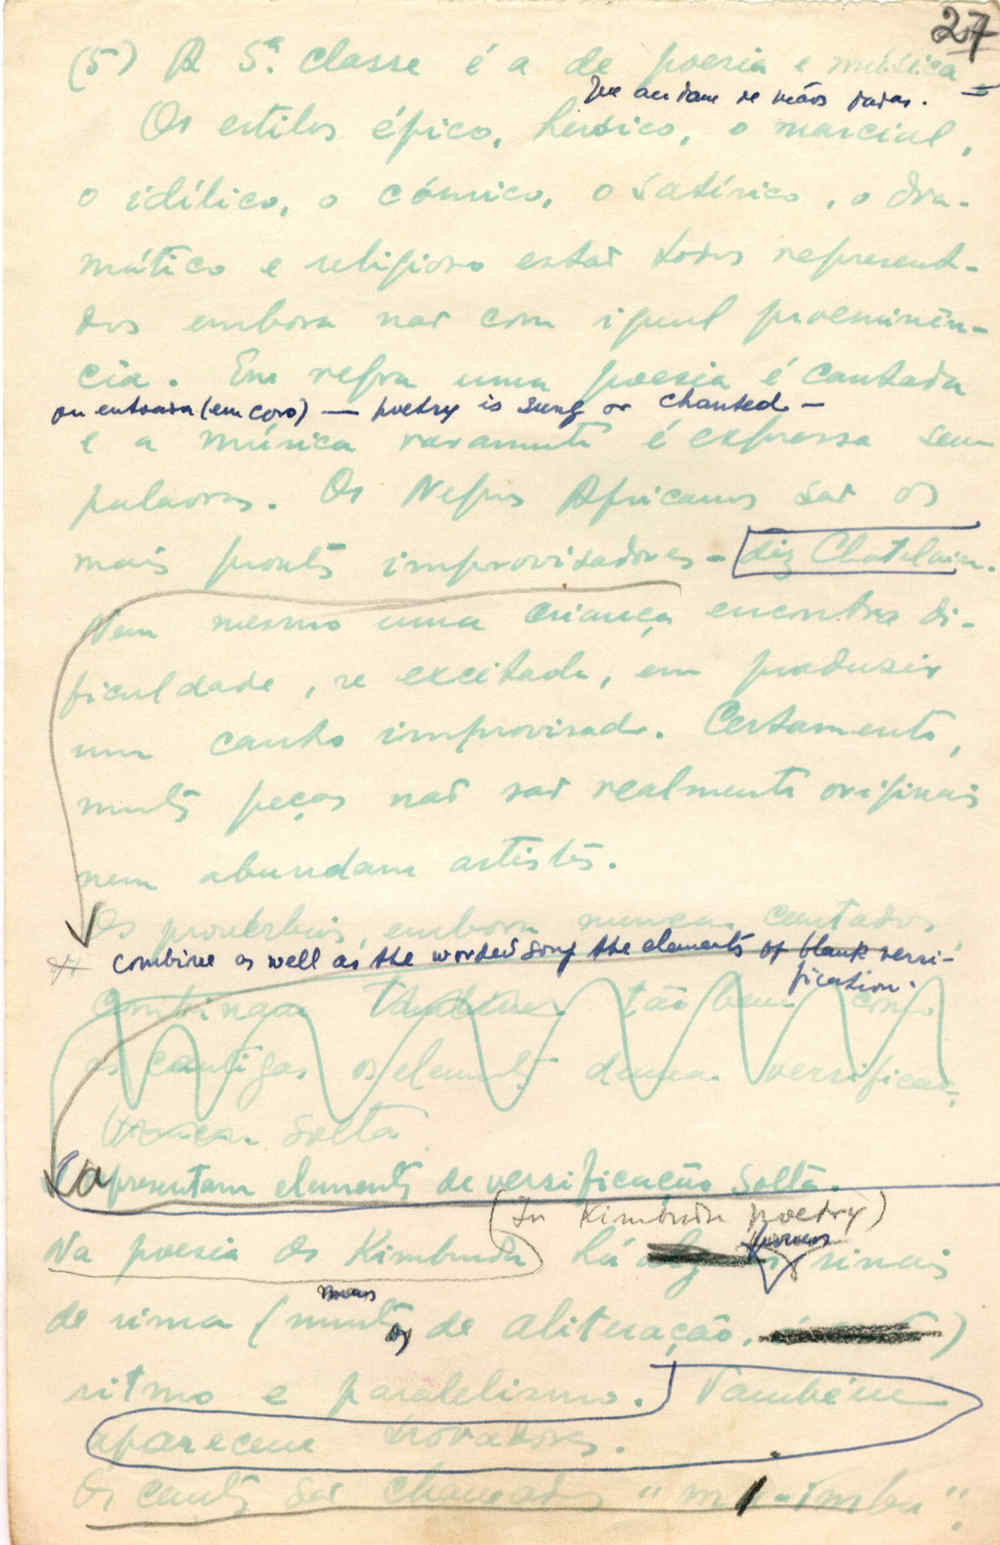 27
(5) A 5.ª classe é a de poesia e música =
que andam de mãos dadas.
Os estilos épico, heróico, o marcial,
o idílico, o cómico, o satírico, o dra-
mático e religioso estão todos represent-
dos embora não com igual proeminên-
cia. Em regra uma poesia é cantada
ou entoada (em coro) — poetry is sung or chanted —
e a música raramente é expressa sem
palavras. Os Negros Africanos são os
mais prontos improvisadores - diz Chatelain.
Nem mesmo uma criança encontra di-
ficuldade, se excitada, em produzir
um canto improvisado. Certamente,
muitas peças não são realmente originais
nem abundam artistas.
Os provérbios, embora nunca cantados,
combine as well as the worded song the elements of blank versi-
fication.
combinam tão bem como
as cantigas os elementos duma versificac,
solta
apresentam elementos de versificação solta.
(In Kimbundu poetry)
Na poesia os Kimbundu há poucos sinais
de rima (mas muitos de aliteração, )
ritmo e paralelismo. Também
aparecem trovadores.
Os cantos são chamados "mi-imbu".